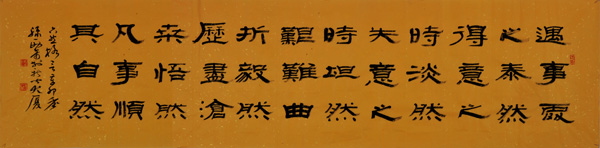 遇事處
之泰然
得意之
時淡然
失意之
時坦然
艱難曲
折毅然
歷盡滄
桒悟然
凡事順
其自然